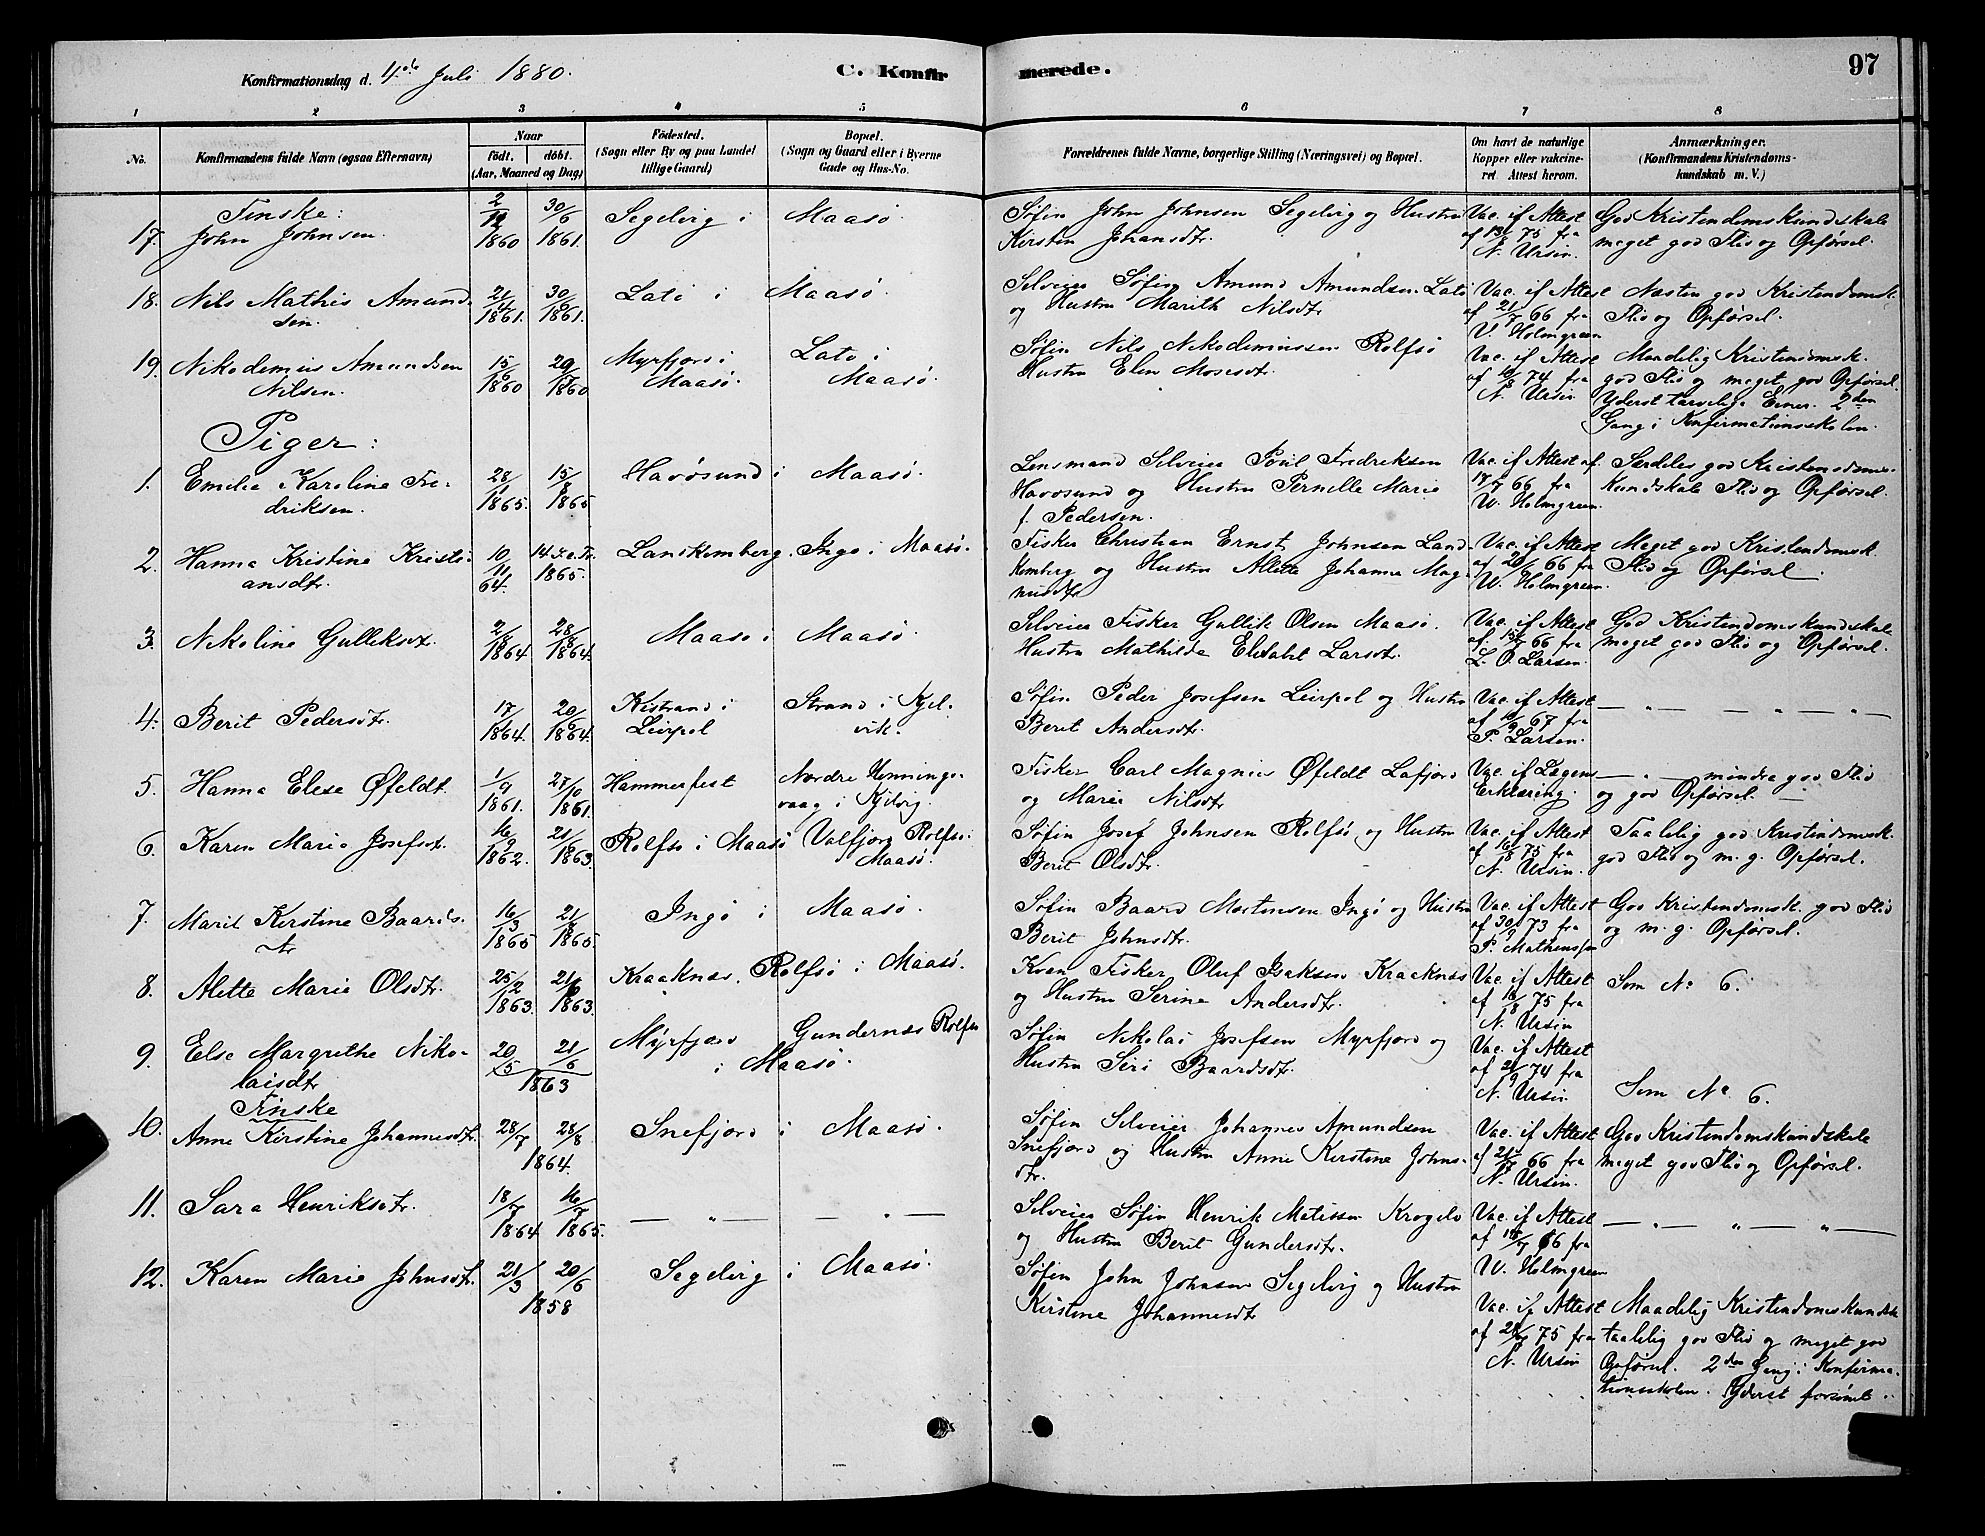 Konfirmationsdag d. 4de Juli 1880.
C. Konfir
merede.
97
1 2 3 4 5 6 7 8
No.
Konfirmandens fulde Navn (ogsaa Efternavn)
Naar
födt. döbt.
(Aar, Maaned og Dag)
Födested.
(Sogn eller By og paa Landet
tillige Gaard)
Bopæl.
(Sogn og Gaard eller i Byerne
Gade og Hus-No.
Forældrenes fulde Navne, borgerlige Stilling (Næringsvei) og Bopæl.
Om havt de naturlige
Kopper eller vakcine-
ret. Attest herom.
Anmærkninger.
(Konfirmandens Kristendoms-
kundskab m. V.)
Finske:
17. John Johnsen. 2/12 1860 30/6 1861. Segelvig i Maasö.
Söfin John Johnsen Segelvig og Hustru
Kirsten Johansdtr.
Vac. if Attest
af 13/ 75 fra
N. Ursin.
God Kristendomskundskab
meget god Flid og Opförsel.
18. Nils Mathis Amund-
sen. 21/4 1861. 30/6 1861. Latö i Maasö.
Selveier Söfin Amund Amundsen Latö
og Hustru Marith Nilsdtr
Vac. if Attest
af 21/7 66 fra
W. Holmgreen
Næsten god Kristendomsk.
Flid og Opförsel.
19. Nikodemus Amundsen
Nilsen. 15/6 1860 29/ 1860 Myrfjord i
Maasö.
Latö i
Maasö.
Söfin Nils Nikodemussen Rolfsö
Hustru Elen Mosesdt
Vac. if Attest
af 16/8 74 fra
N. Ursin
Maadelig Kristendomsk.
god Flid og meget god Opförsel.
Yderst tarvelige Evner. 2den
Gang i Konfirmationsskolen.
Piger:
1. Emilie Karoline Fre-
driksen. 28/ 1865. 15/8 1865 Havösund i Maasö.
Lensmand Selveier Povil Fredriksen
Havösund og Hustru Pernille Marie
f. Pedersen.
Vac. if Attest af
17/7 66 fra
W. Holmgreen.
Særdeles god Kristendoms-
kundskab Flid og Opförsel.
2. Hanna Kristine Kristi-
ansdtr. 10/11 64. 14 S. e. Tr. 1865. Landkemberg. Ingö i Maasö.
Fisker Christian Ernst Johnsen Land-
kemberg og Hustru Alette Johanna Mag-
nusdtr
Vac. if Attest
af 20/6 66 fra
W. Holmgreen.
Meget god Kristendomsk.
Flid og Opförsel.
3. Nikoline Gulliksdt. 2/ 1864 28/8 1864. Maasö i Maasö.
Selveier Fisker Gullik Olsen Maasö.
Hustru Mathilde Elisabet Larsdtr.
Vac. if Attest
af 66 fra
L. O. Larsen.
God Kristendomskundskab
meget god Flid og Opförsel.
4. Berit Pedersdtr. 17/ 1864. 20/6 1864. Kistrand i
Leirpol
Strand i Kjel-
vik.
Söfin Peder Josefsen Leirpol og Hustru
Berit Andersdtr.
Vac. if Attest
af 67 fra
P. Larsen.
— „ — „ — „ —
5. Hanna Elese Øfeldt. 1/9 1861. 27/10 1861. Hammerfest
Nordre Honnings-
vaag i Kjelvig.
Fisker Carl Magnus Øfeldt Lafjord
og Marie Nilsdtr
Vac. if Lægens
Erklæring.
— „ — mindre god Flid
og god Opförsel. —
6. Karen Marie Josefsdt. 16/9 1862. 21/6 1863. Rolfsö i Maasö Valfjord Rolfsö i
Maasö.
Söfin Josef Johnsen Rolfsö og Hustru
Berit Olsdtr.
Vac. if Attest
af 16/8 75 fra
N. Ursin.
Taalelig god Kristendomsk.
god Flid og m. g. Opförsel.
7. Marit Kirstine Baards-
dtr 16/3 1865 21/ 1865. Ingö i Maasö.
Söfin Baard Mortensen Ingö og Hustru
Berit Johnsdtr.
Vac. if Attest
af 30/9 73 fra
P. Mathensen
God Kristendomsk. god Flid
og m. g. Opförsel.
8. Alette Marie Olsdtr. 25/2 1863. 21/6 1863. Kraaknæs. Rolfsö i Maasö.
Kven Fisker Oluf Isaksen Kraaknæs
og Hustru Serine Andersdtr.
Vac. if Attest
af 16/8 75 fra
N. Ursin
Som No 6.
9. Else Margrethe Niko-
laisdtr 20/5 21/6 1863 Myrfjord Gundernæs Rolfsö
i Maasö.
Söfin Nikolai Josefsen Myrfjord og
Hustru Siri Baardsdtr.
Vac. if Attest
af 21/9 74 fra
N. Ursin
Som No 6.
Finske
10. Anne Kirstine Johannesdtr. 28/7 28/8 1864. Snefjord i Maasö.
Söfin Selveier Johannes Amundsen
Snefjord og Hustru Anne Kirstine Johns-
dtr.
Vac. if Attest
af 66 fra
N. Ursin.
God Kristendomskundskab
meget god Flid og Opförsel.
11. Sara Henriksdtr. 18/7 1864 16/7 1865. — „ — — „ —
Selveier Söfin Henrik Matissen Krogelv
og Hustru Berit Gundersdtr.
Vac. if Attest
af 66 fra
W. Holmgreen
— „ — „ — „ —
12. Karen Marie Johnsdtr. 21/3 20/6 1858 Segelvig i Maasö.
Söfin John Johnsen Segelvig og Hustru
Kirstine Johannesdtr
Vac. if Attest
af 75 fra
N. Ursin
Maadelig Kristendomskundsk.
taalelig god Flid og meget god
Opförsel. 2den Gang i Konfirma-
tionsskolen. Yderst forsömt.